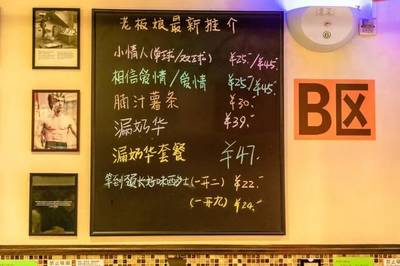 老板娘最新推介
小情人(单球/双球) ¥25-/¥45-
相信爱情/爱情 ¥25/¥45-
腩汁薯条 ¥30-
漏奶华 ¥39-
漏奶华套餐 ¥47.
等到颈长好味西多士(一开二) ¥22-
(一开九) ¥24-
B区